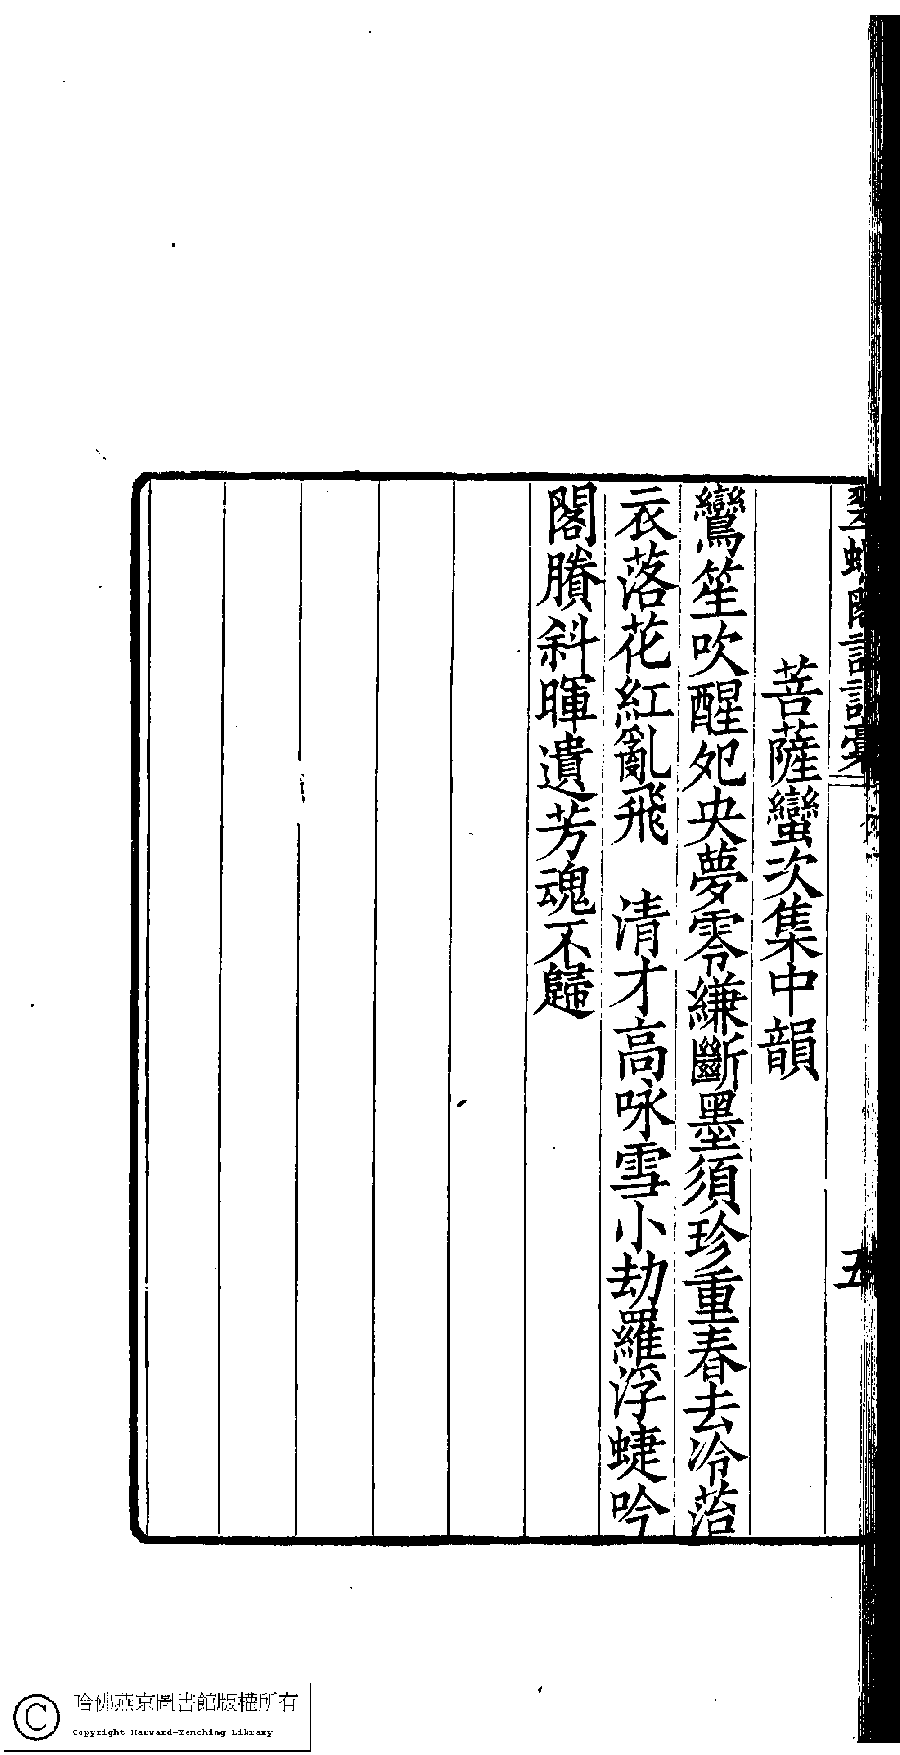 翠螺閣詩詞稾
五
菩薩蠻次集中韻
鸞笙吹醒夗央夢零縑斷墨須珍重春去冷菭
衣落花紅亂飛　清才高咏雪小劫羅浮蜨吟
閣賸斜暉遺芳魂不歸
哈佛燕京圖書館版權所有
Copyright Harvard-Yenching Library